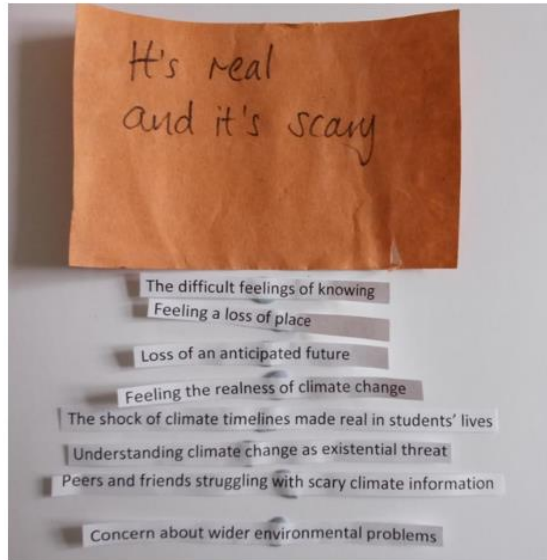 It's real
and it's scary
The difficult feelings of knowing
Feeling a loss of place
Loss of an anticipated future
Feeling the realness of climate change
The shock of climate timelines made real in students' lives
Understanding climate change as existential threat
Peers and friends struggling with scary climate information
Concern about wider environmental problems